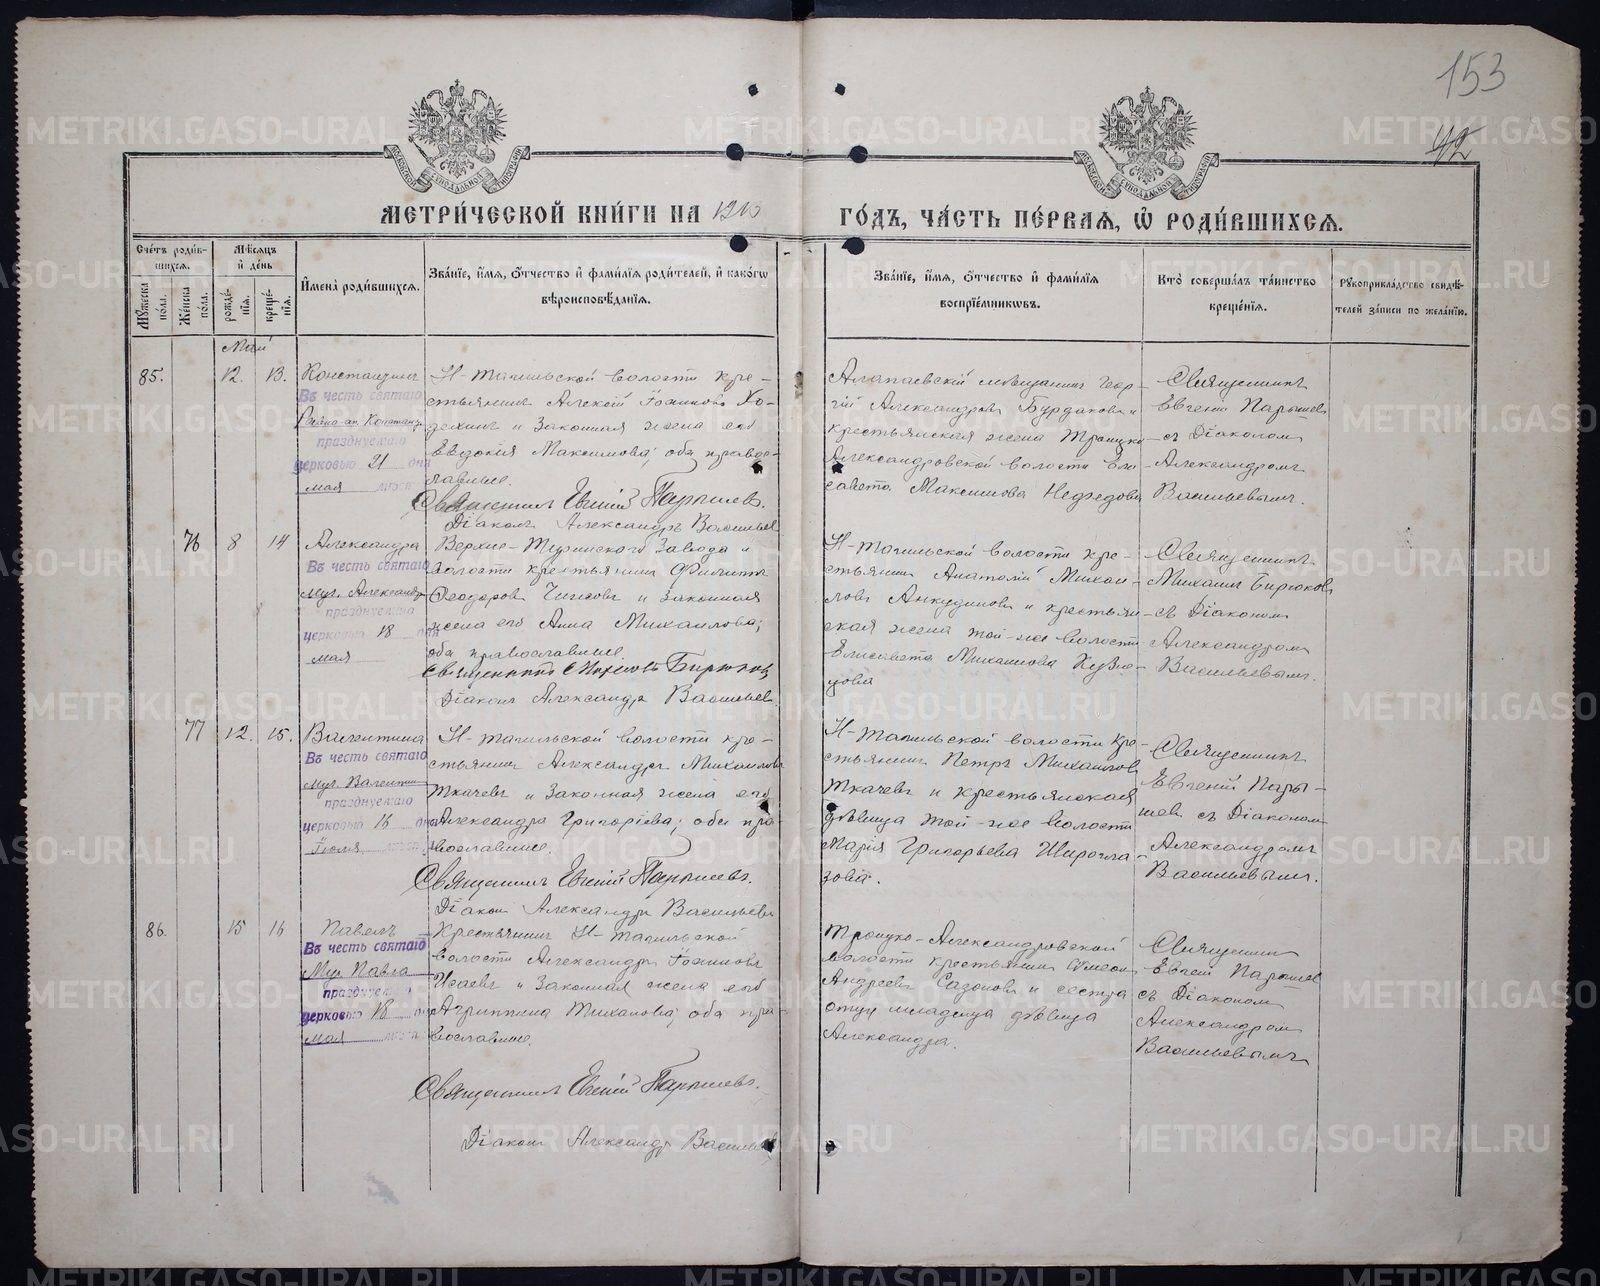 153
42
МОСКОВСКОЙ СУНОДАЛЬНОЙ ТИПОГРАФІИ
МОСКОВСКОЙ СУНОДАЛЬНОЙ ТИПОГРАФІИ
МЕТРИ́ЧЕСКОЙ КНИ́ГИ НА
ГО́ДЪ, ЧА́СТЬ ПЕ́РВАЯ, Ѿ РОДИ́ВШИХСЯ.
Сче́тъ роди́в-
шихся.
Му́жеска по́ла.
Же́нска по́ла.
Мѣ́сяцъ и де́нь
рожде́нія.
креще́нія.
Имена̀ роди́вшихся.
Зва́ніе, и́мя, о́тчество и фами́лія роди́телей, и како́гѡ
вѣроисповѣ́данія.
Зва́ніе, и́мя, о́тчество и фами́лія
воспріе́мникѡвъ.
Кто̀ соверша́лъ та́инство
креще́нія.
Рꙋкоприкла́дство свидѣ́-
телей за́писи по жела́нію.
Май
85.
12. 13.
Константинъ
Въ честь святаго
Равно-ап. Констант.
празднуемаго
церковью 21 дня
мая
Н-Тагильской волости кре-
стьянинъ Алексій
и законная жена его
Евдокія Максимова; оба право-
славные.
Священникъ Евгеній Парышевъ.
Діаконъ Александръ Васильевъ
Алапаевскій мѣщанинъ Геор-
гій Александровъ Бурдаковъ и
крестьянская жена Троицко-
Александровской волости Ели-
савета Максимова
Священникъ
Евгеній Парышевъ
съ Діакономъ
Александромъ
Васильевымъ.
76
8 14
Александра
Въ честь святаго
муч. Александр
празднуемаго
церковью 18 дня
мая
Верхне-Туринскаго завода и
волости крестьянинъ Филиппъ
Ѳеодоровъ и законная
жена его Анна Михаилова;
оба православные.
Священникъ Михаилъ Бирюковъ
Діаконъ Александръ Васильевъ
Н-Тагильской волости кре-
стьянинъ Анатолій Михаи-
ловъ Анкудиновъ и крестьян-
ская жена той-же волости
Елисавета Михаилова Кузне-
цова
Священникъ
Михаилъ Бирюковъ
съ Діакономъ
Александромъ
Васильевымъ.
77
12. 15.
Валентина
Въ честь святаго
муч. Валентин
празднуемаго
церковью 16 дня
Іюля
Н-Тагильской волости кре-
стьянинъ Александръ Михаиловъ
Ткачевъ и законная жена его
Александра Григоріева; оба пра-
вославные.
Священникъ Евгеній Парышевъ.
Діаконъ Александръ Васильевъ
Н-Тагильской волости кре-
стьянинъ Петръ Михаиловъ
Ткачевъ и крестьянская
дѣвица той-же волости
Марія Григорьева Широгла-
зова.
Священникъ
Евгеній Пары-
шевъ съ Діакономъ
Александромъ
Васильевымъ.
86.
15 16
Павелъ
Въ честь святаго
Муч Павла
празднуемаго
церковью 18 дня
мая
Крестьянинъ Н-Тагильской
волости Александръ
Исаевъ и законная жена его
Агриппина Тихонова; оба пра-
вославные.
Священникъ Евгеній Парышевъ.
Діаконъ Александръ Васильевъ
Троицко-Александровской
волости крестьянинъ Симеонъ
Андреевъ Сазоновъ и сестра
отцу младенца дѣвица
Александра.
Священникъ
Евгеній Парышевъ
съ Діакономъ
Александромъ
Васильевымъ
METRIKI.GASO-URAL.RU